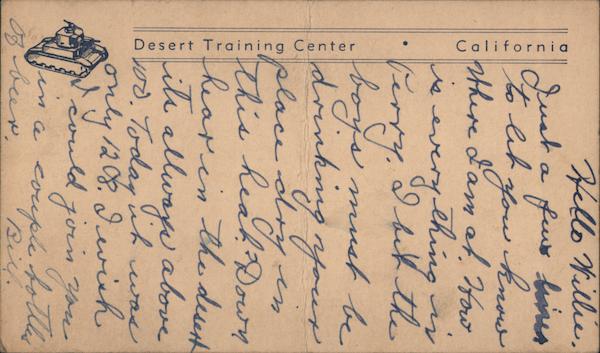 Desert Training Center • California
Hello Willie.
Just a few lines
to let you know
where I am at. How
is everything in
Perry. I bet the
boys must be
drinking your
place dry in
this heat. Down
hear in the desert
its allways above
100. Today it was
only 128. I wish
I could join you
in a couple bottles
of beer.
Bill.